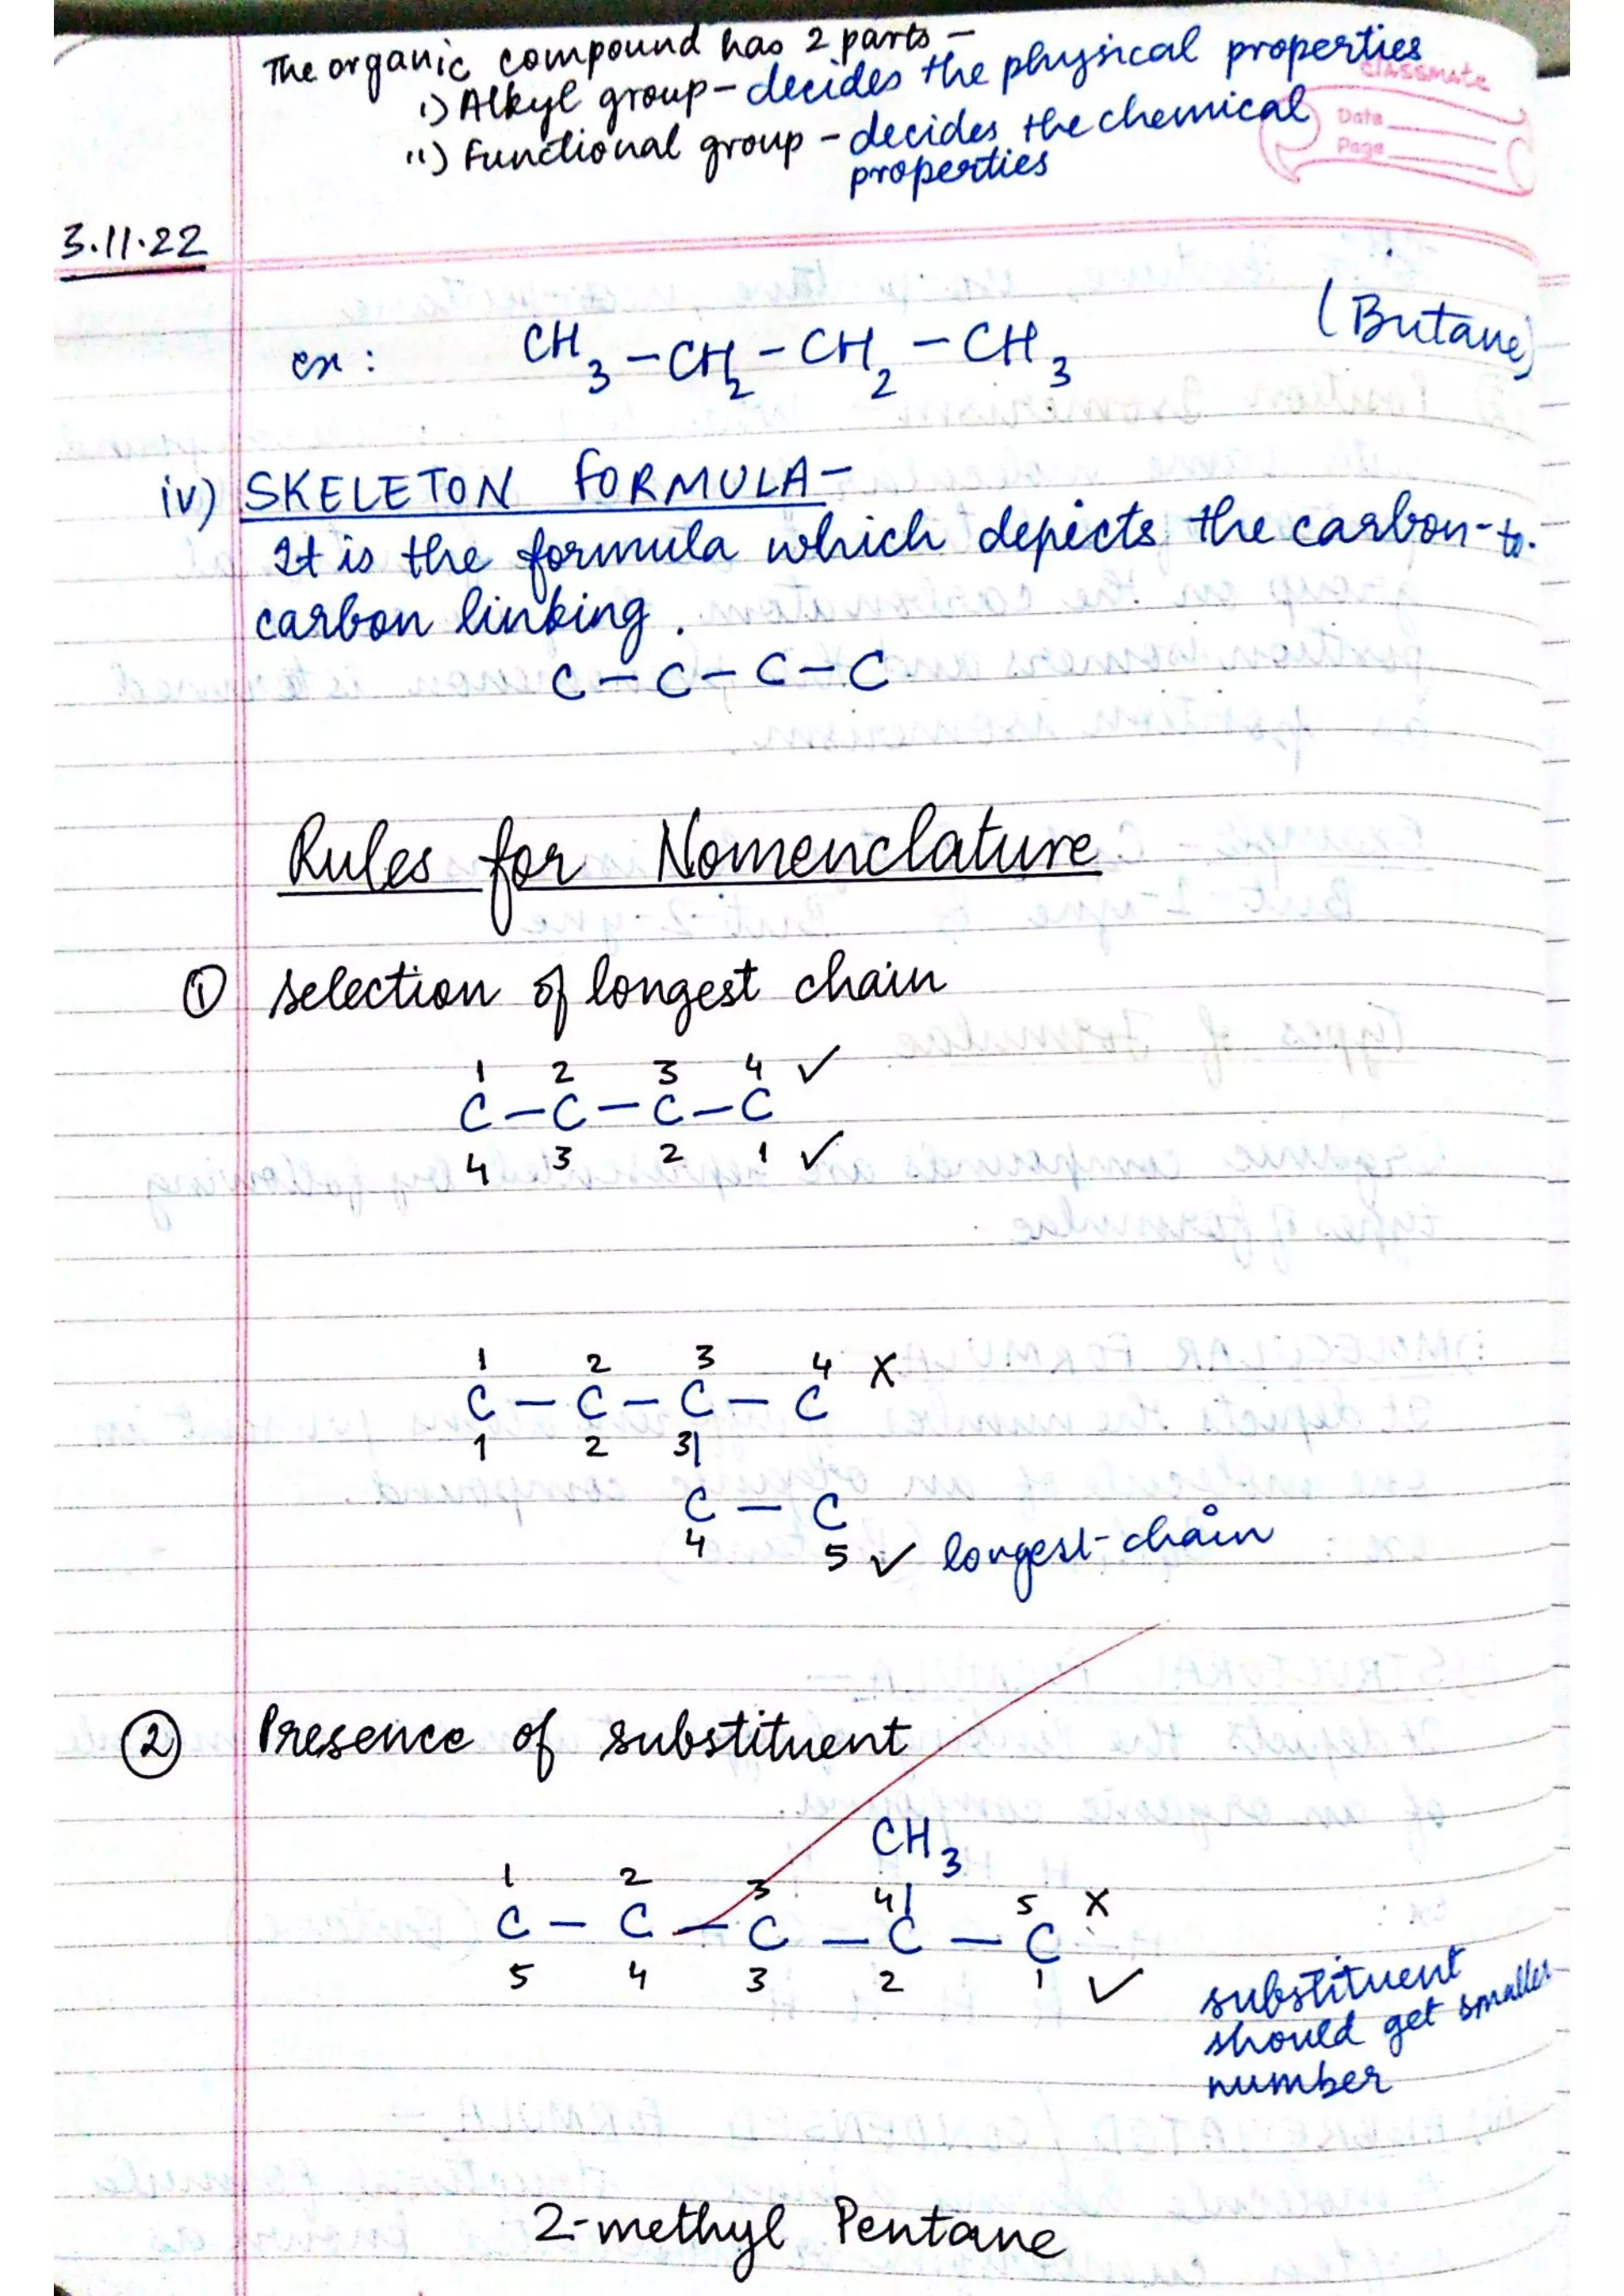 The organic compound has 2 parts -
i) Alkyl group - decides the physical properties
ii) Functional group - decides the chemical
properties
classmate
Date
Page
3.11.22
ex : CH3 - CH2 - CH2 - CH3 (Butane)
iv) SKELETON FORMULA -
It is the formula which depicts the carbon-to-
carbon linking.
C - C - C - C
Rules for Nomenclature
① Selection of longest chain
1 2 3 4 ✓
C - C - C - C
4 3 2 1 ✓
1 2 3 4 X
C - C - C - C
1 2 3|
C - C
4 5 ✓ longest-chain
② Presence of substituent
CH3
1 2 3 4| 5 X
C - C - C - C - C
5 4 3 2 1 ✓
substituent
should get smaller
number
2-methyl Pentane